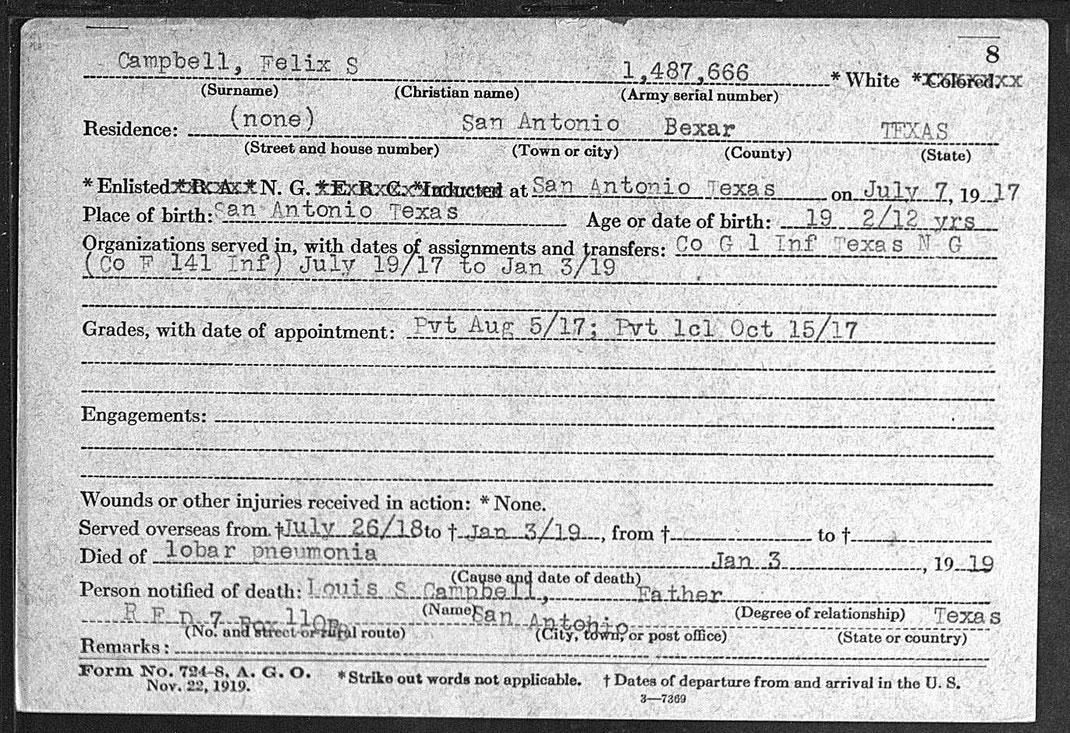 8
Campbell, Felix S 1,487,666 * White * Colored.
(Surname) (Christian name) (Army serial number)
Residence: (none) San Antonio Bexar TEXAS
(Street and house number) (Town or city) (County) (State)
* Enlisted * R. A. * N. G. * E. R. C. * Inducted at San Antonio Texas on July 7, 19 17
Place of birth: San Antonio Texas Age or date of birth: 19 2/12 yrs
Organizations served in, with dates of assignments and transfers: Co G 1 Inf Texas N G
(Co F 141 Inf) July 19/17 to Jan 3/19
Grades, with date of appointment: Pvt Aug 5/17; Pvt 1cl Oct 15/17
Engagements:
Wounds or other injuries received in action: * None.
Served overseas from † July 26/18 to † Jan 3/19, from † to †
Died of lobar pneumonia Jan 3, 19 19
(Cause and date of death)
Person notified of death: Louis S Campbell, Father
(Name) (Degree of relationship)
R F D 7 Box San Antonio Texas
(No. and street or rural route) (City, town, or post office) (State or country)
Remarks:
Form No. 724-8, A. G. O. * Strike out words not applicable. † Dates of departure from and arrival in the U. S.
Nov. 22, 1919. 3—7369